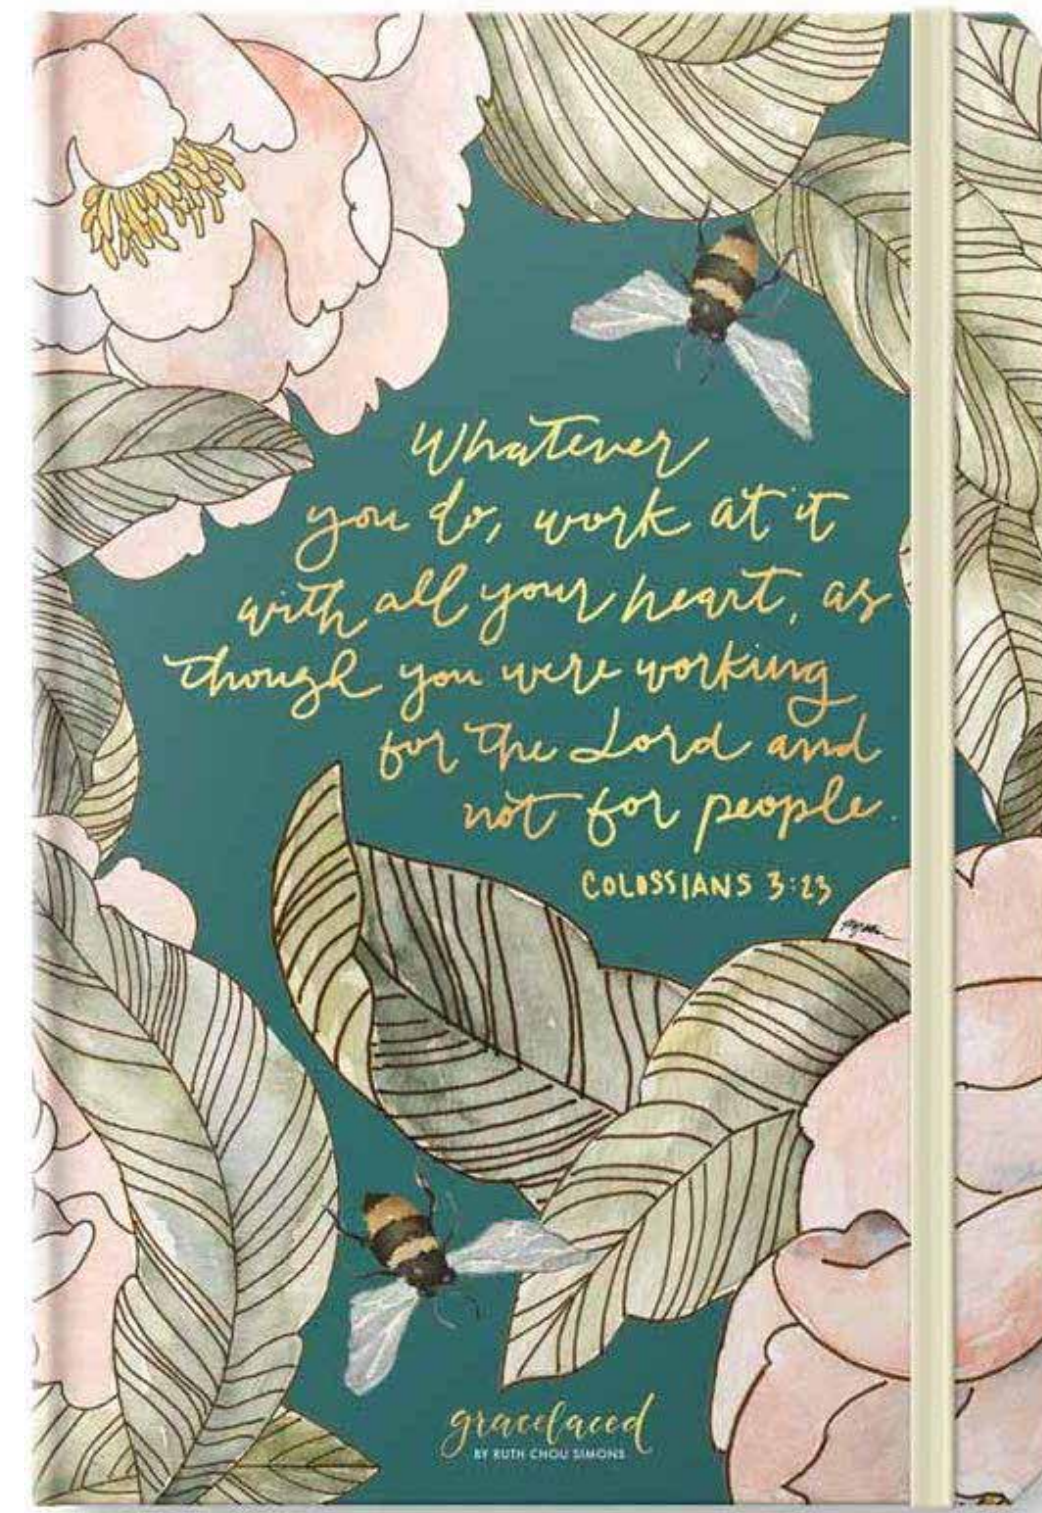 Whatever
you do, work at it
with all your heart, as
though you were working
for the Lord and
not for people.
COLOSSIANS 3:23
gracelaced
BY RUTH CHOU SIMONS